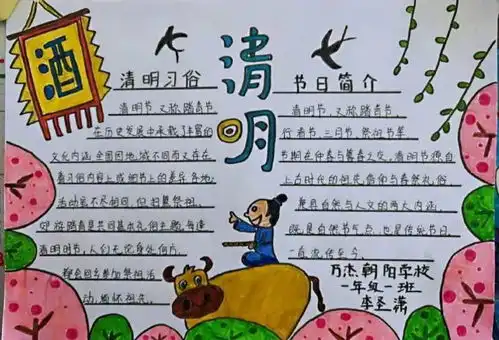 酒
清明
清明习俗
清明节,又称踏青节,
在历史发展中承载了丰富的
文化内涵,全国因地域不同而又存在
着习俗内容上或细节上的差异,各地
活动虽不尽相同,但扫墓祭祖、
踏青是共同基本礼俗主题,每逢
清明时节,人们无论身处何方,
都会回乡参加祭祖活
动,缅怀祖先。
节日简介
清明节,又称踏青节、
行青节、三月节、祭祖节等,
节期在仲春与暮春之交,清明节源自
上古时代的祖先信仰与春祭礼俗,
兼具自然与人文的两大内涵,
既是自然节气点,也是传统节日,
一直流传至今。
万杰朝阳学校
一年级一班
李圣潇